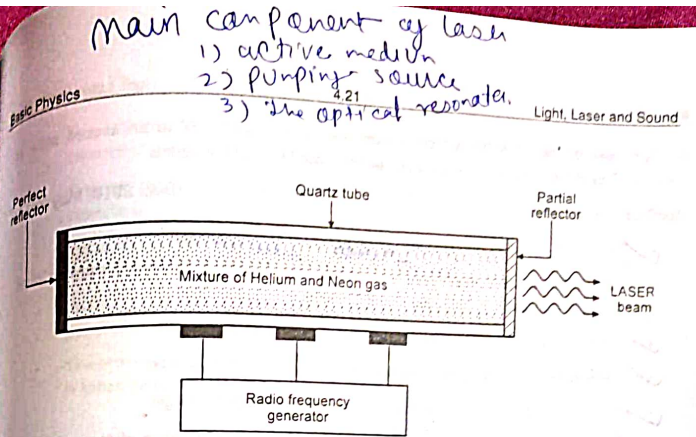 main component of laser
1) active medium
2) pumping source
3) the optical resonator.
Basic Physics
4.21
Light, Laser and Sound
Perfect
reflector
Quartz tube
Partial
reflector
Mixture of Helium and Neon gas
LASER
beam
Radio frequency
generator